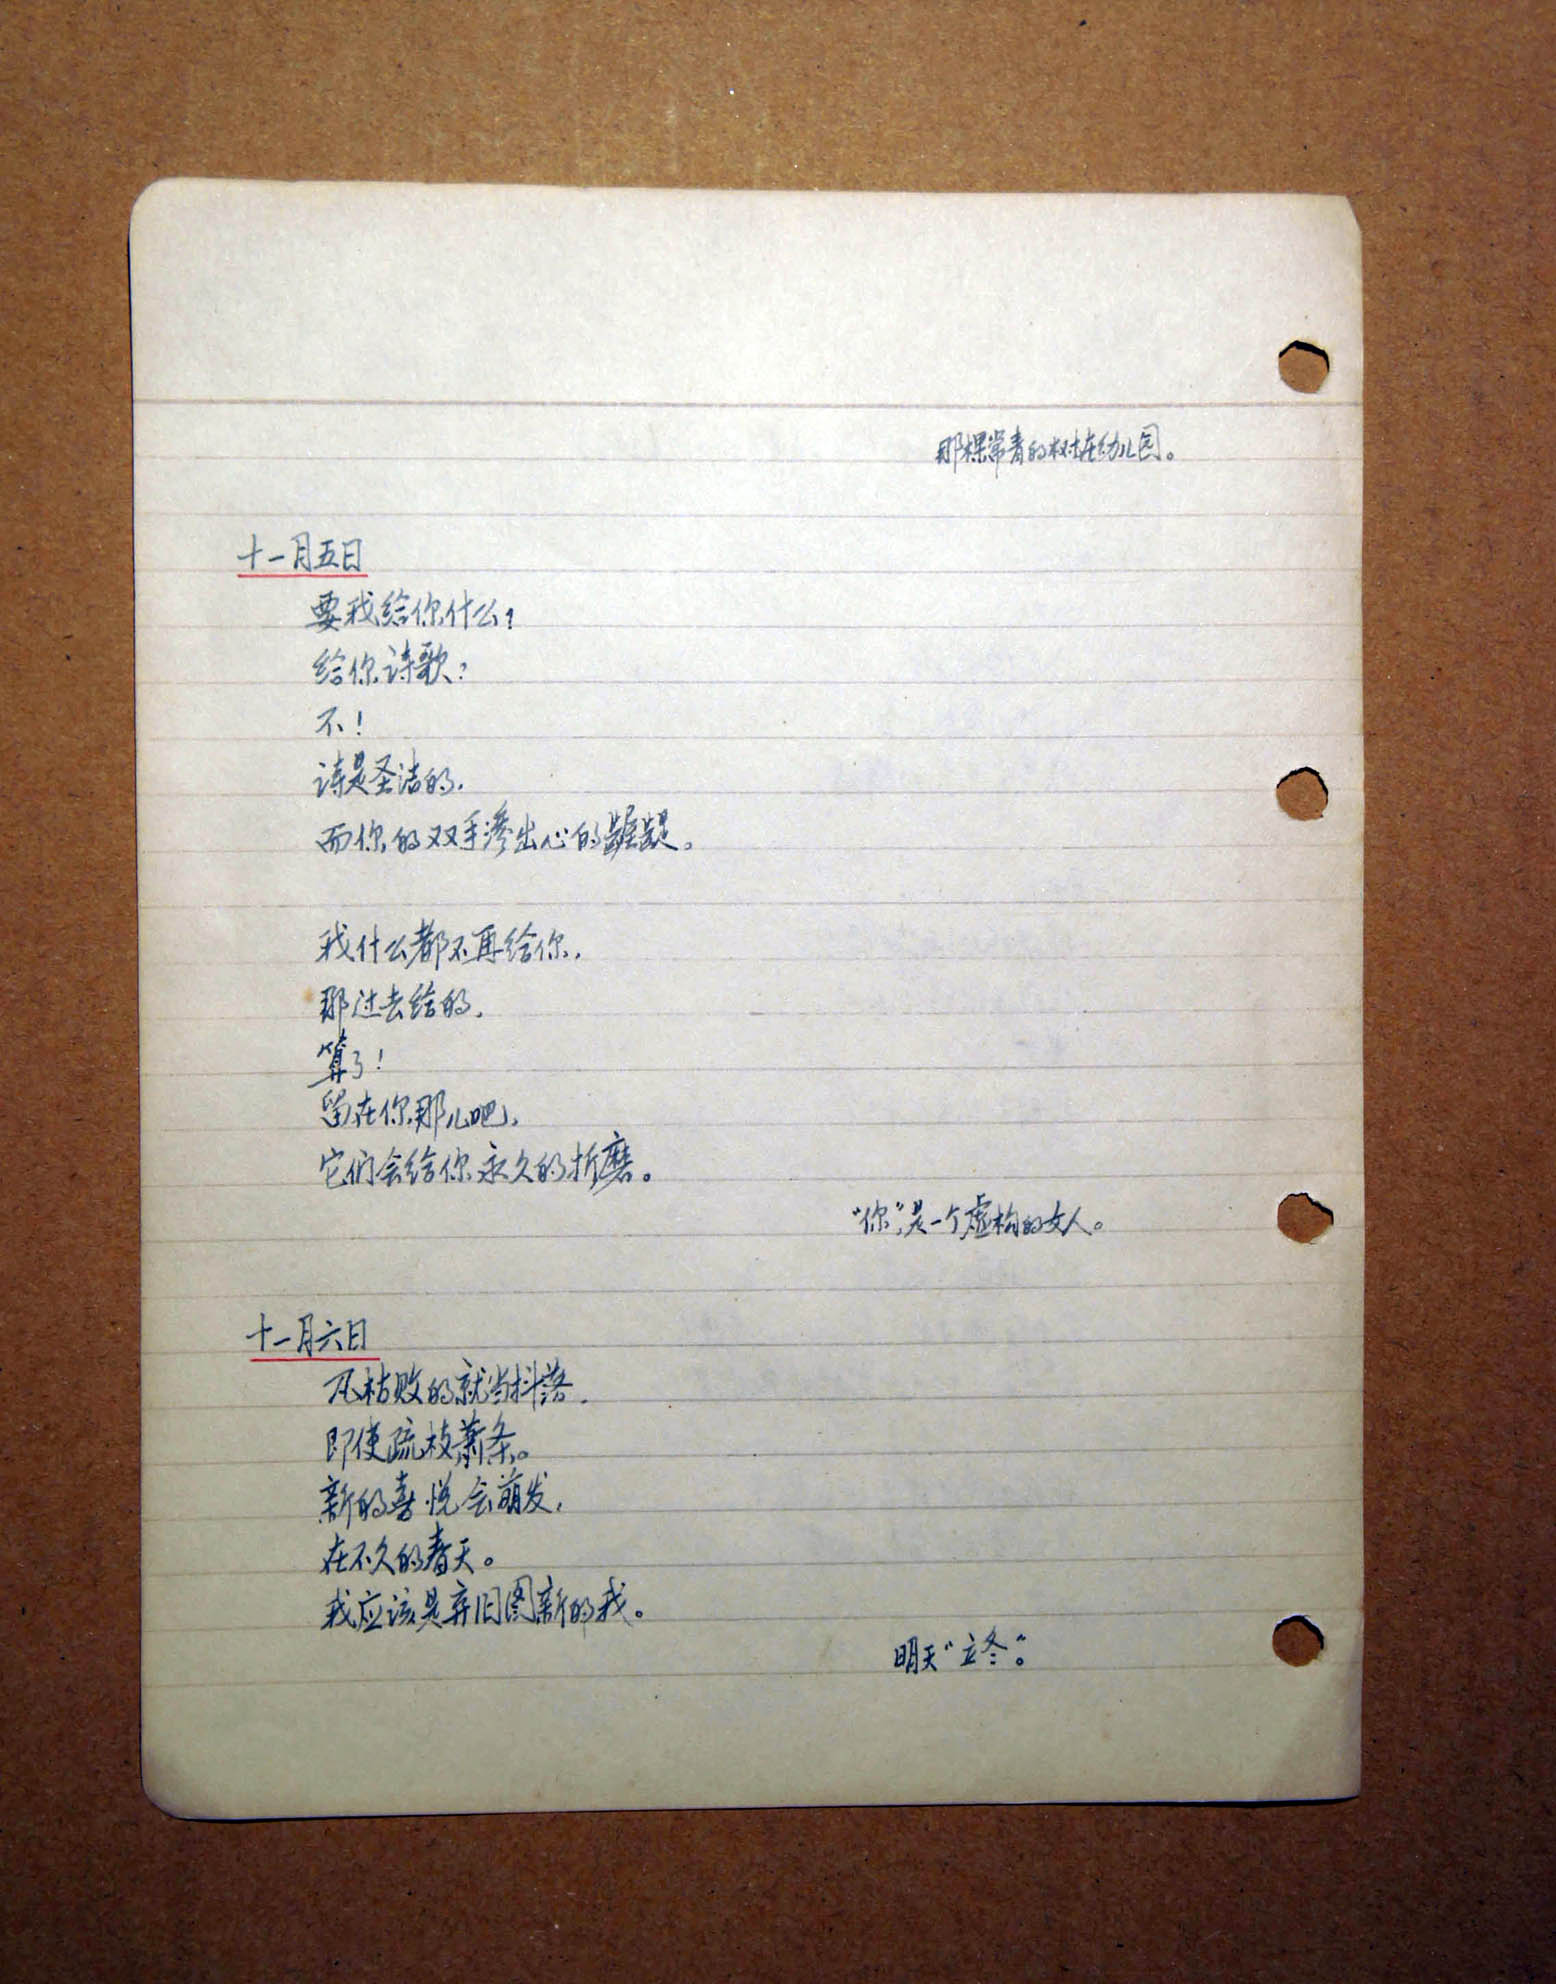 那棵常青的树在幼儿园。
十一月五日
要我给你什么?
给你诗歌?
不!
诗是圣洁的,
而你的双手渗出心的龌龊。
我什么都不再给你,
那过去给的,
算了!
留在你那儿吧,
它们会给你永久的折磨。
“你”,是一个虚构的女人。
十一月六日
凡枯败的就当抖落,
即使疏枝萧条。
新的喜悦会萌发,
在不久的春天。
我应该是弃旧图新的我。
明天“立冬”。